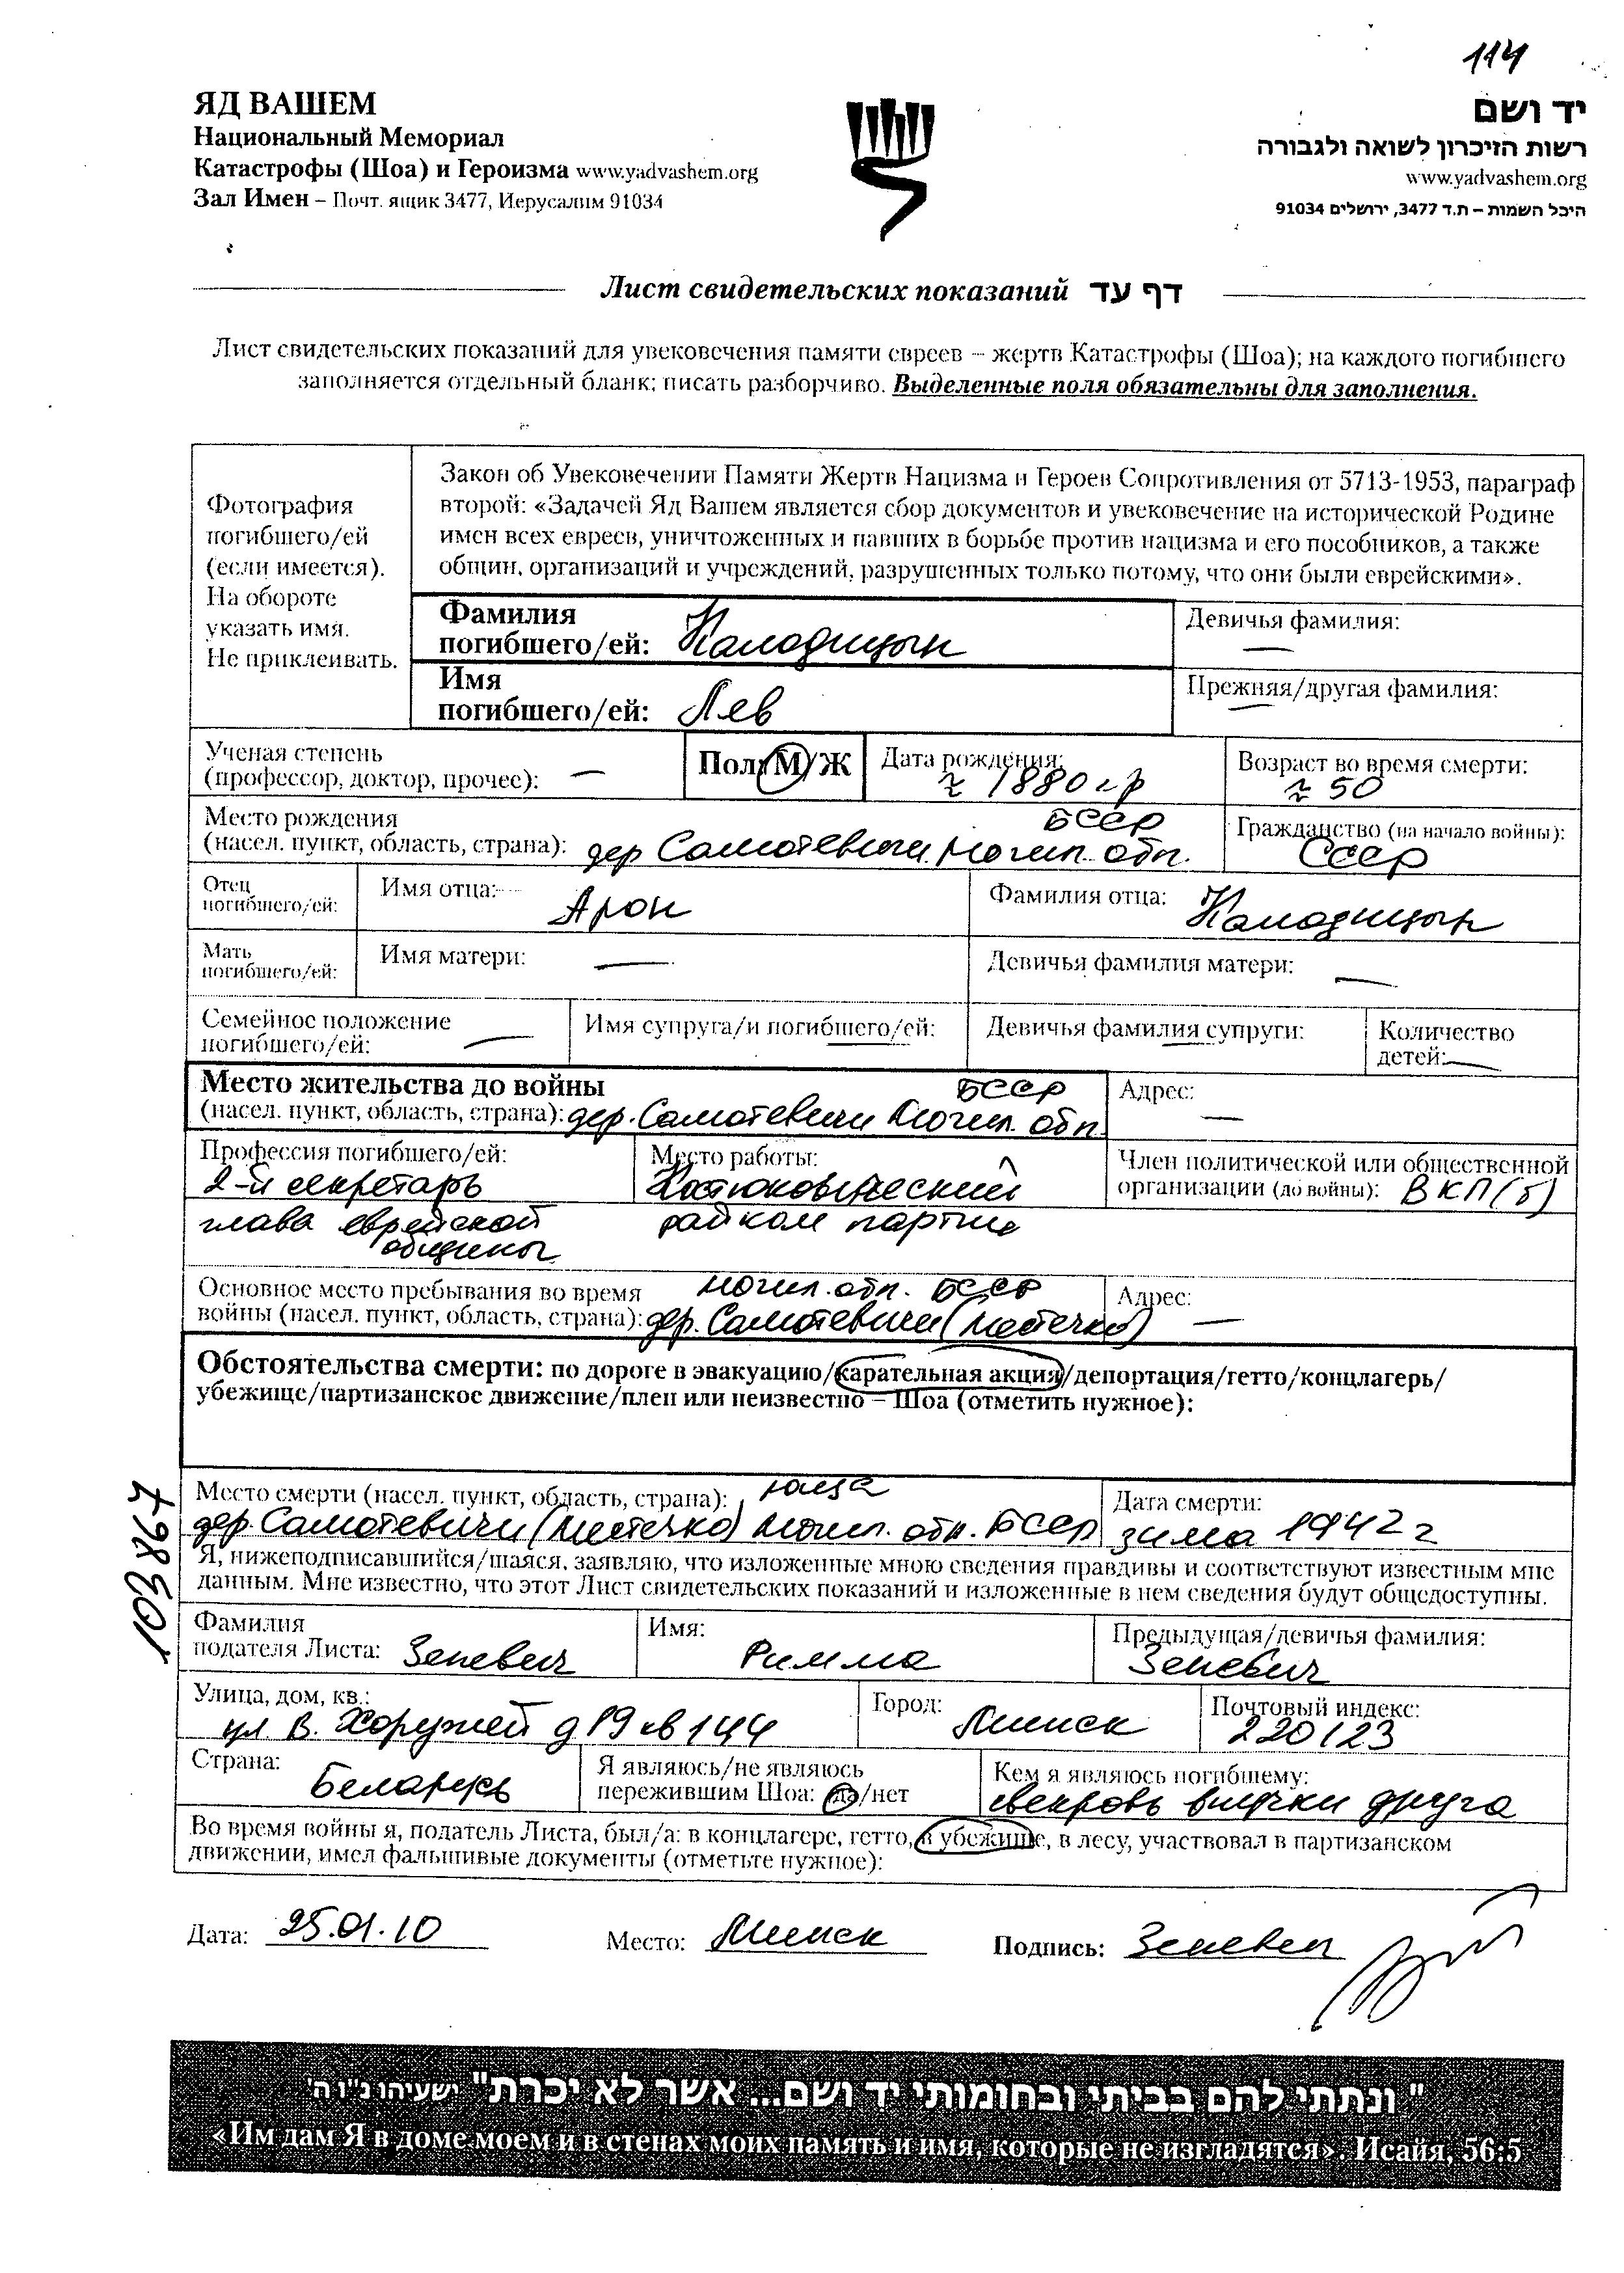 114
ЯД ВАШЕМ
Национальный Мемориал
Катастрофы (Шоа) и Героизма www.yadvashem.org
Зал Имен – Почт. ящик 3477, Иерусалим 91034
יד ושם
רשות הזיכרון לשואה ולגבורה
www.yadvashem.org
היכל השמות – ת.ד 3477, ירושלים 91034
Лист свидетельских показаний דף עד
Лист свидетельских показаний для увековечения памяти евреев – жертв Катастрофы (Шоа); на каждого погибшего
заполняется отдельный бланк; писать разборчиво. Выделенные поля обязательны для заполнения.
Фотография
погибшего/ей
(если имеется).
На обороте
указать имя.
Не приклеивать.
Закон об Увековечении Памяти Жертв Нацизма и Героев Сопротивления от 5713-1953, параграф
второй: «Задачей Яд Вашем является сбор документов и увековечение на исторической Родине
имен всех евреев, уничтоженных и павших в борьбе против нацизма и его пособников, а также
общин, организаций и учреждений, разрушенных только потому, что они были еврейскими».
Фамилия
погибшего/ей: Калодицын
Девичья фамилия:
—
Имя
погибшего/ей: Лев
Прежняя/другая фамилия:
—
Ученая степень
(профессор, доктор, прочее): —
Пол: М/Ж
Дата рождения:
≈ 1880 г р
Возраст во время смерти:
≈ 50
Место рождения БССР
(насел. пункт, область, страна): дер Самотевичи Могил. обл.
Гражданство (на начало войны):
СССР
Отец
погибшего/ей:
Имя отца: Арон
Фамилия отца: Калодицын
Мать
погибшего/ей:
Имя матери: —
Девичья фамилия матери: —
Семейное положение
погибшего/ей: —
Имя супруга/и погибшего/ей:
—
Девичья фамилия супруги:
—
Количество
детей: —
Место жительства до войны БССР
(насел. пункт, область, страна): дер. Самотевичи Могил. обл.
Адрес:
—
Профессия погибшего/ей:
2-й секретарь
глава еврейской
общины
Место работы:
Костюковический
райком партии
Член политической или общественной
организации (до войны): ВКП(б)
Основное место пребывания во время Могил. обл. БССР
войны (насел. пункт, область, страна): дер. Самотевичи (местечко)
Адрес:
—
Обстоятельства смерти: по дороге в эвакуацию/карательная акция/депортация/гетто/концлагерь/
убежище/партизанское движение/плен или неизвестно – Шоа (отметить нужное):
Место смерти (насел. пункт, область, страна):
дер. Самотевичи (местечко) Могил. обл. БССР
Дата смерти:
зима 1942 г
Я, нижеподписавшийся/шаяся, заявляю, что изложенные мною сведения правдивы и соответствуют известным мне
данным. Мне известно, что этот Лист свидетельских показаний и изложенные в нем сведения будут общедоступны.
Фамилия
подателя Листа: Зеневич
Имя:
Римма
Предыдущая/девичья фамилия:
Зеневич
Улица, дом, кв.:
ул. В. Хоружей д 19 кв 144
Город:
Минск
Почтовый индекс:
220123
Страна:
Беларусь
Я являюсь/не являюсь
пережившим Шоа: да/нет
Кем я являюсь погибшему:
свекровь внучки друга
Во время войны я, податель Листа, был/а: в концлагере, гетто, в убежище, в лесу, участвовал в партизанском
движении, имел фальшивые документы (отметьте нужное):
Дата: 25.01.10
Место: Минск
Подпись: Зеневич
"ונתתי להם בביתי ובחומותי יד ושם... אשר לא יכרת" ישעיהו נ"ו ה'
«Им дам Я в доме моем и в стенах моих память и имя, которые не изгладятся». Исайя, 56:5